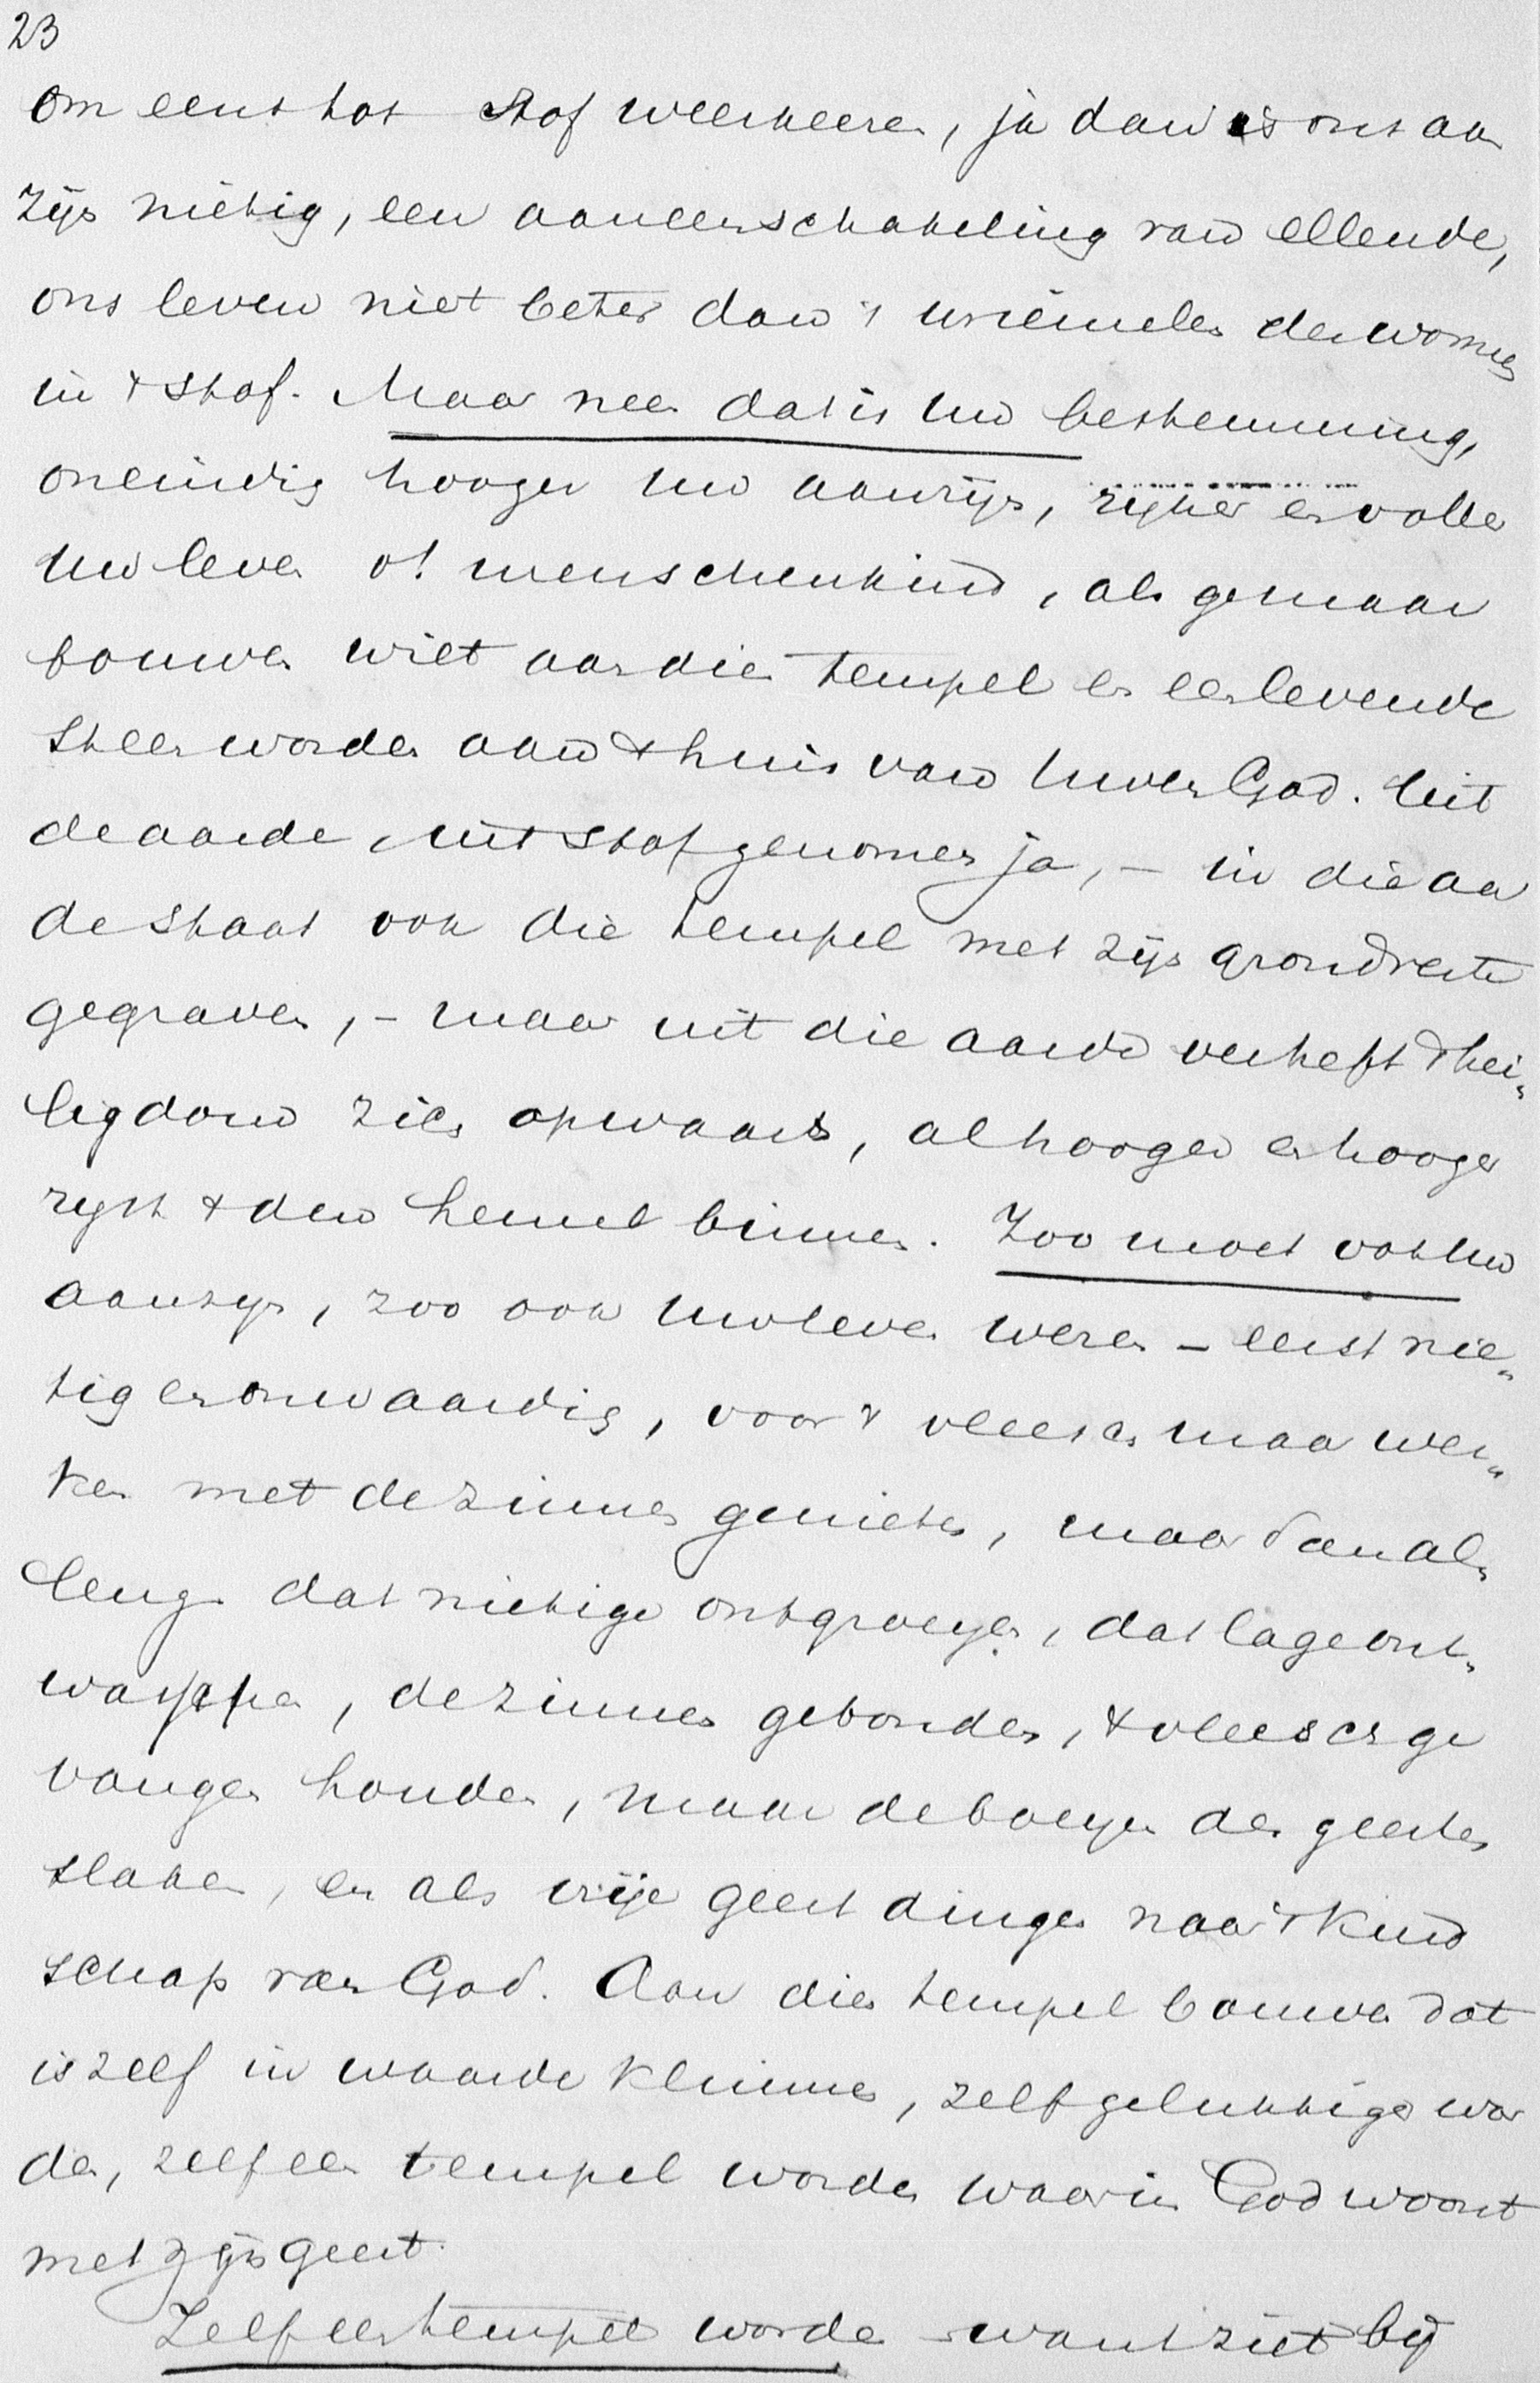 23
om eens tot stof weerkeeren, ja dan is ons aan
zijn nietig, een aaneenschakeling van ellende,
ons leven niet beter dan 't wriemelen der wormen
in 't stof. Maar neen dat is uw bestemming,
oneindig hooger uw aanzijn, rijker en voller
uw leven o! menschenkind, als ge maar
bouwen wilt aan dien tempel en een levende
steen worden aan 't huis van uwen God. Uit
de aarde, uit stof genomen ja, – in die aar
de staat ook die tempel met zijn grondvesten
gegraven, – maar uit die aarde verheft 't hei-
ligdom zich opwaarts, al hooger en hooger
rijst 't den hemel binnen. Zoo moet ook uw
aanzijn, zoo ook uw leven wezen – eerst nie-
tig en onwaardig, voor 't vleesch maar wer-
ken met de zinnen genieten, maar dan al-
lengs dat nietige ontgroeijen, dat lage ont-
worstelen, de zinnen gebonden, 't vleesch ge
vangen houden, maar de boeijen des geestes
slaken, en als vrije geest dingen naar 't kind
schap van God. Aan dien tempel bouwen dat
is zelf in waarde klimmen, zelf gelukkiger wor
den, zelf een tempel worden waarin God woont
met zijn geest.
Zelf een tempel worden – want ziet bij